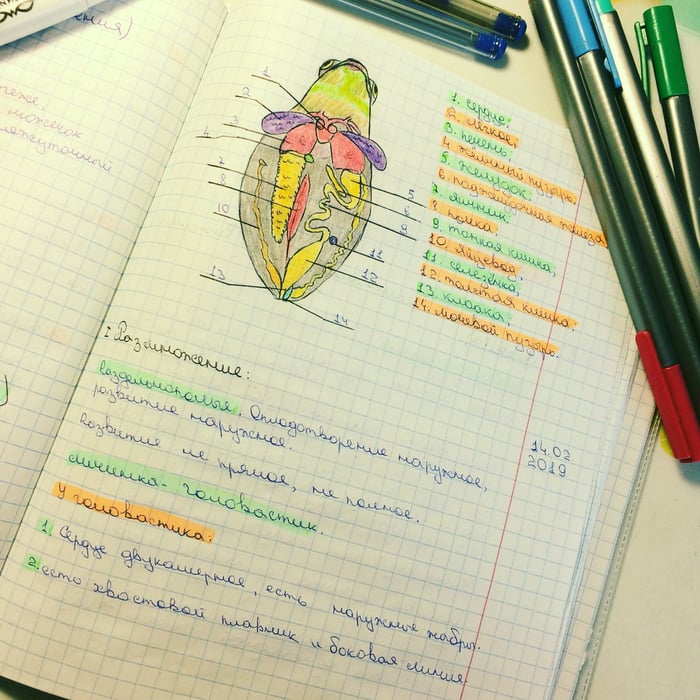 ения)
1
2
3
4
7
8
10
13
5
6
9
11
12
14
1. сердце;
2. лёгкое;
3. печень,
4 жёлчный пузырь,
5. желудок.
6. поджелудочная
7. яичник
8 почка.
9. тонкая кишка,
10. яйцевод.
11. селезёнка.
12. толстая кишка.
13. клоака;
14. мочевой пузырь.
I Размножение:
Раздельнополые. Оплодотворение наружное,
развитие наружное.
Развитие не прямое, не полное.
личинка - головастик.
У головастика:
1. Сердце двукамерное, есть наружные жабры.
2. есть хвостовой плавник и боковая линия.
14.02
2019